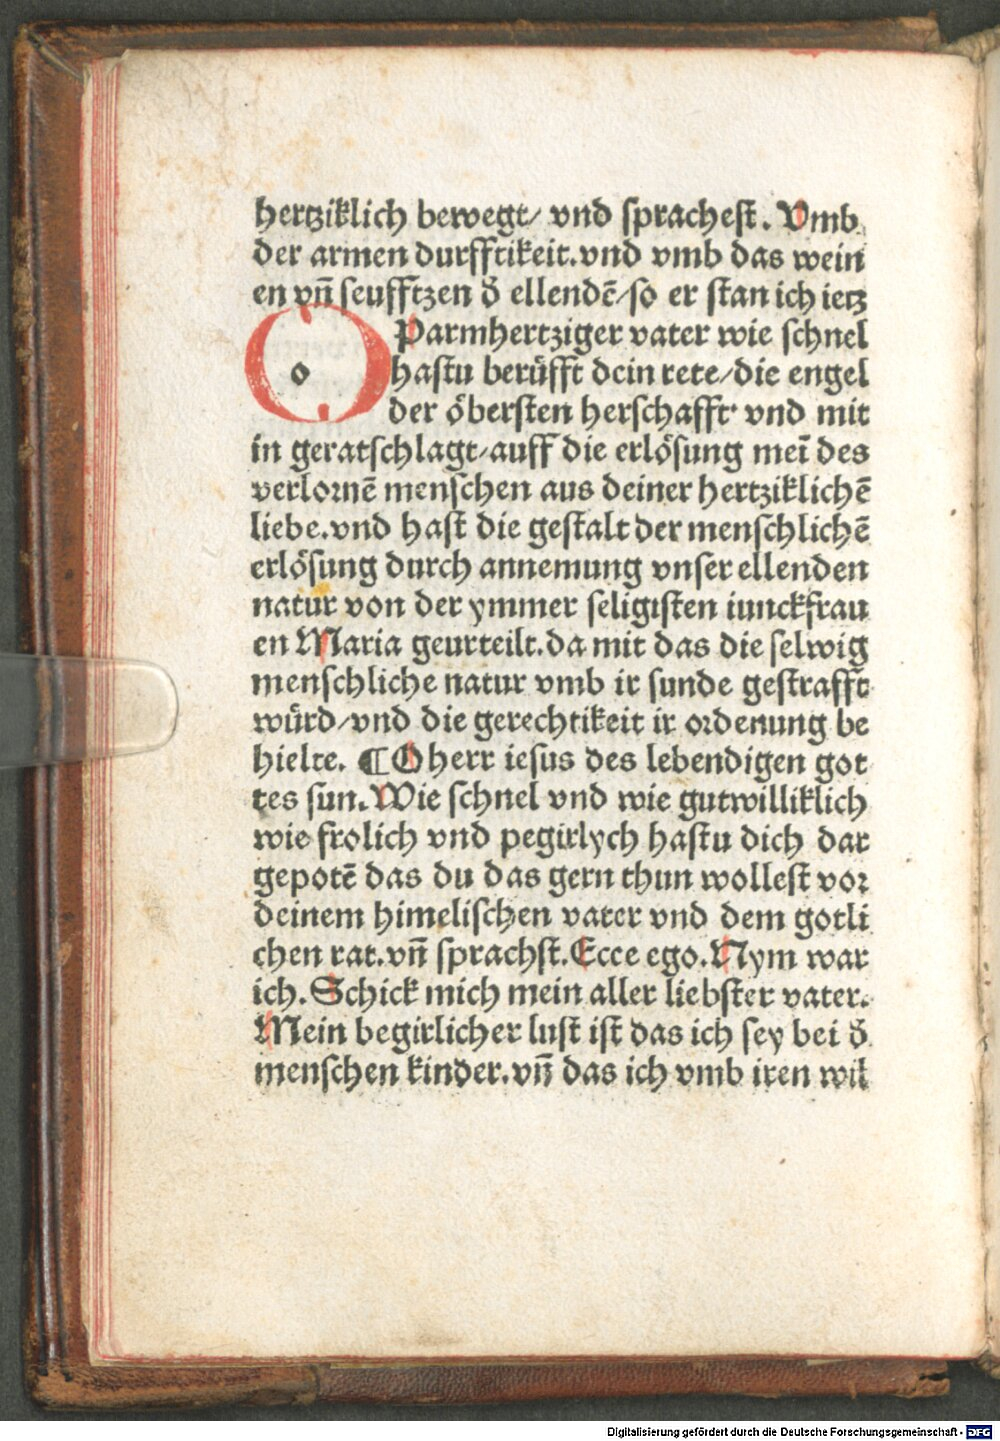 hertziklich bewegt/ vnd sprachest. Vmb
der armen durfftikeit.vnd vmb das wein
en vñ seufftzen ð ellendē/so er stan ich ietz
O Parmhertziger vater wie schnel
o hastu berüfft dein rete/die engel
der öbersten herschafft vnd mit
in geratschlagt/auff die erlösung meī des
verlornē menschen aus deiner hertziklichē
liebe.vnd hast die gestalt der menschlichē
erlösung durch annemung vnser ellenden
natur von der ymmer seligisten iunckfrau
en Maria geurteilt.da mit das die selwig
menschliche natur vmb ir sunde gestrafft
würd/vnd die gerechtikeit ir ordenung be
hielte. ¶O herr iesus des lebendigen got
tes sun.Wie schnel vnd wie gutwilliklich
wie frolich vnd pegirlych hastu dich dar
gepotē das du das gern thun wollest vor
deinem himelischen vater vnd dem gotli
chen rat.vñ sprachst.Ecce ego.Nym war
ich.Schick mich mein aller liebster vater.
Mein begirlicher lust ist das ich sey bei ð
menschen kinder.vñ das ich vmb iren wil
Digitalisierung gefördert durch die Deutsche Forschungsgemeinschaft - DFG